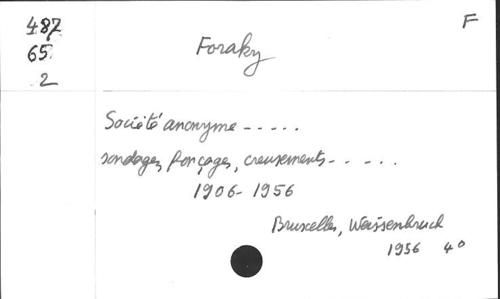 487
65
2
F
Foraky
Société anonyme - - - - -
sondages, fonçages, creusements - - - - - .
1906 - 1956
Bruxelles, Weissenbruch
1956 4°